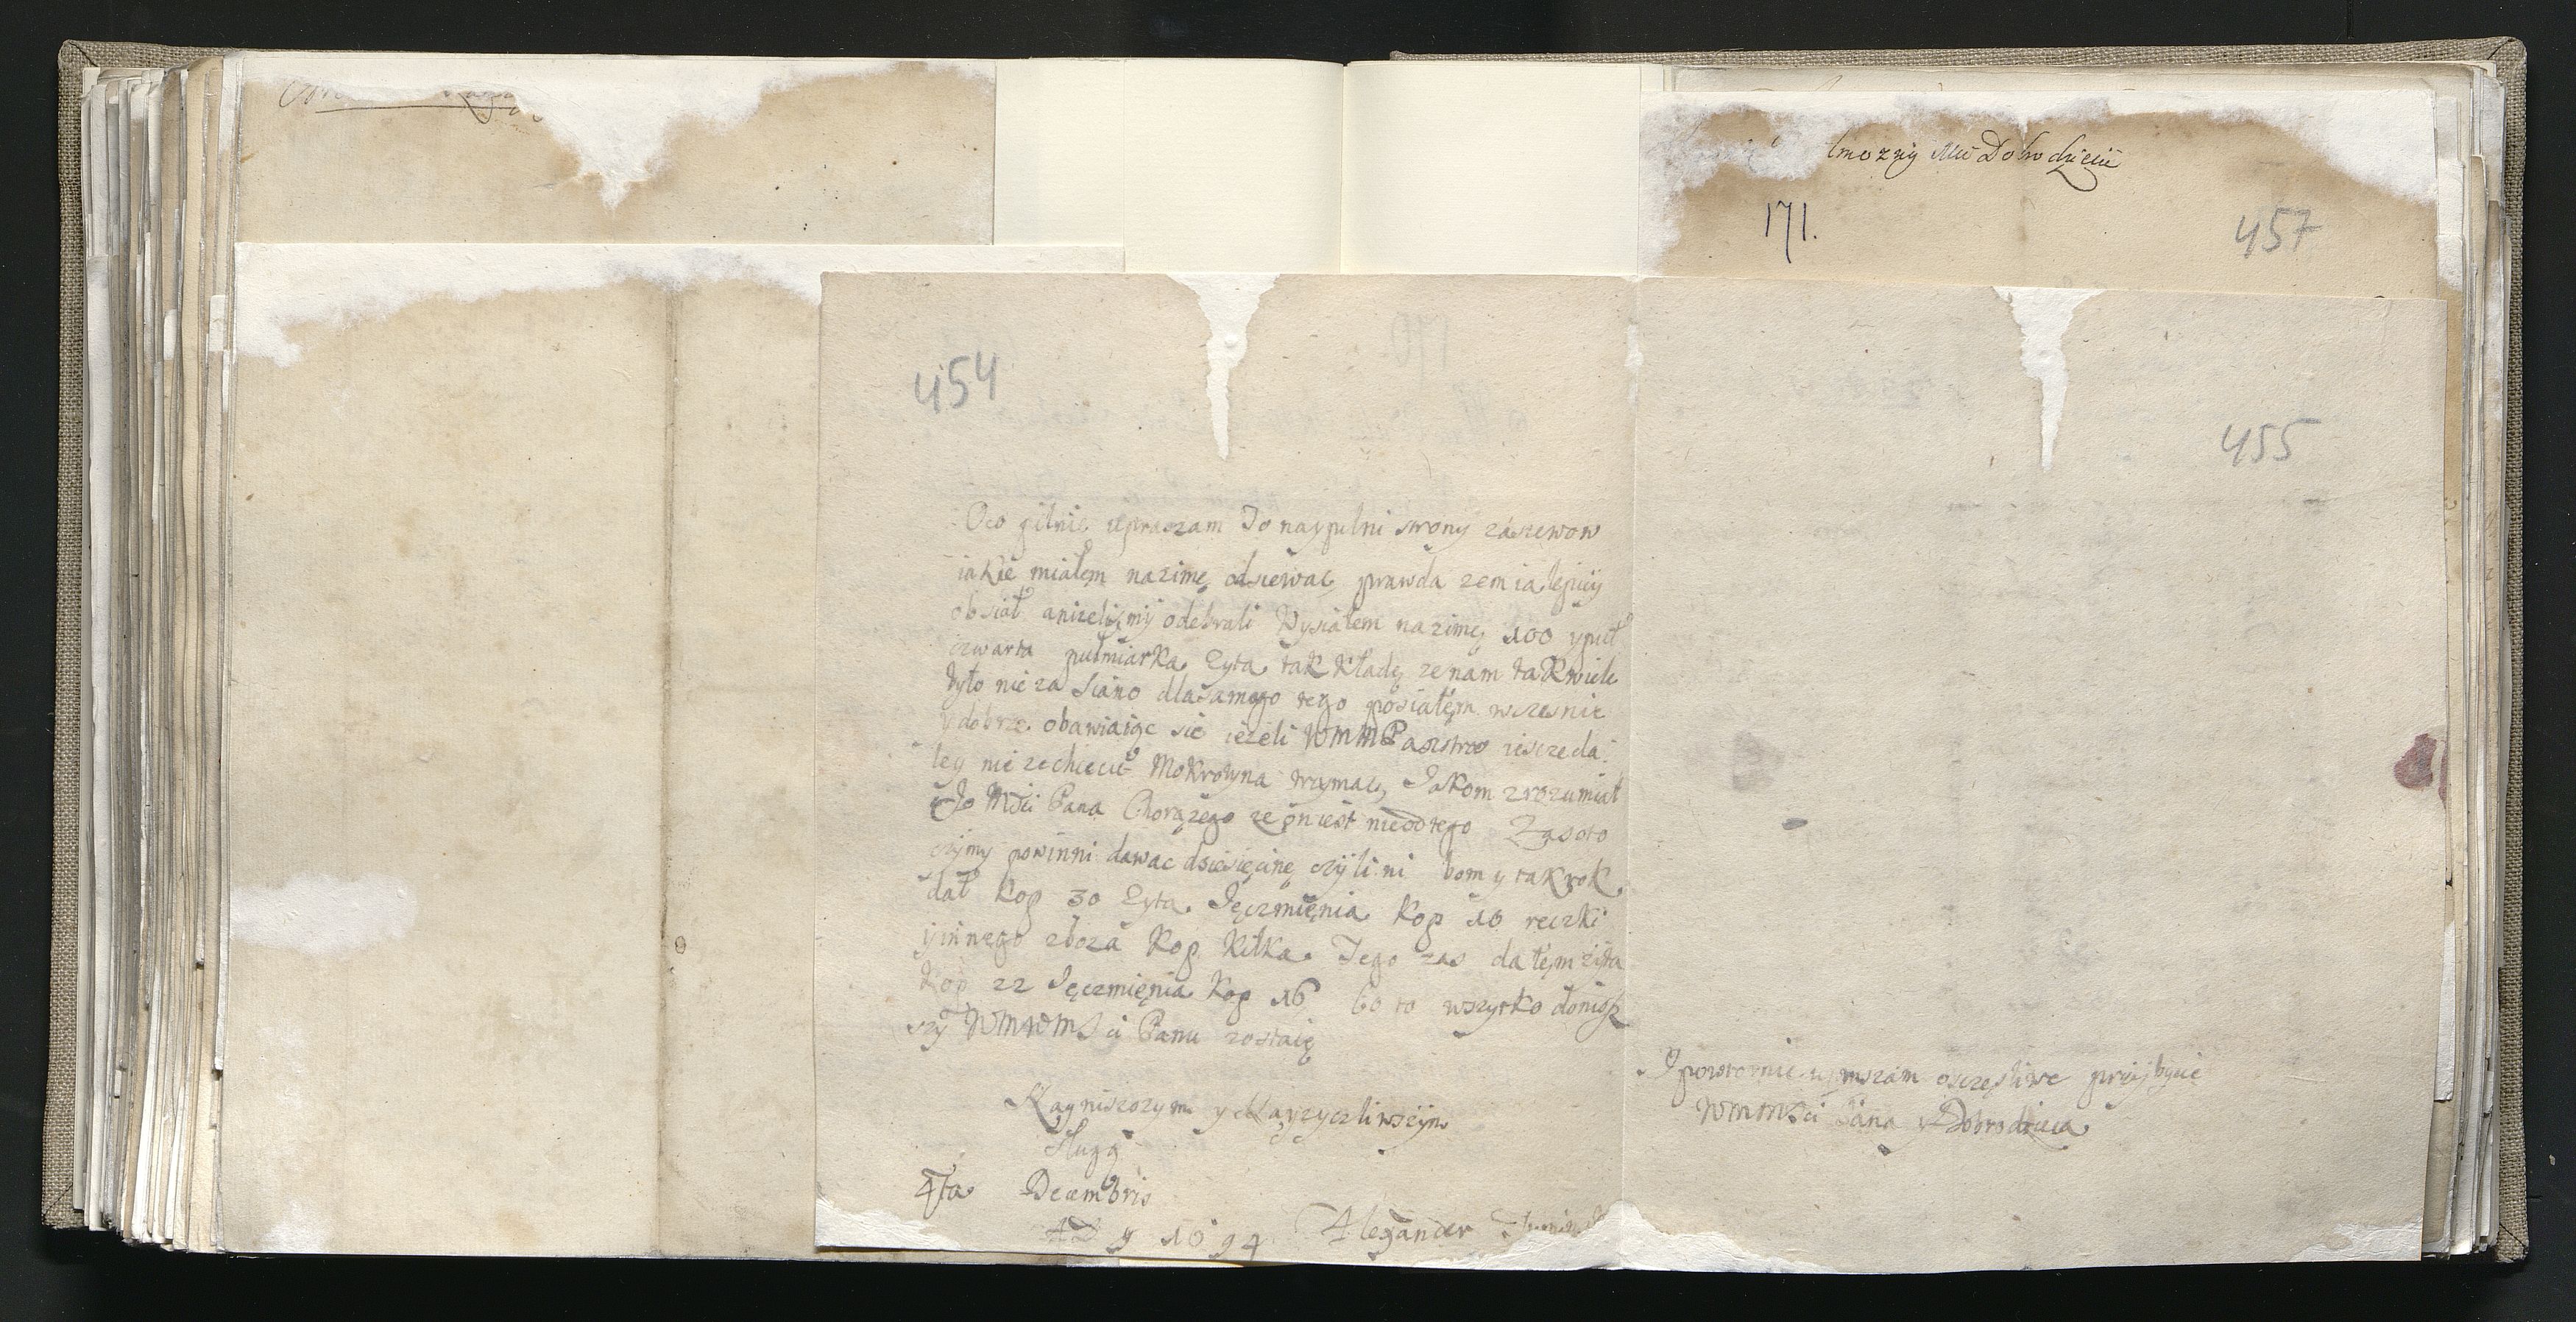 lmozny Mci Dobrodzieiu
171.
457
454
455
Oco pilnie upraszam Jo naypulni strony zasiewow
iakie miałem nazimę odsiewac, prawda zem ia lepiiy
obsiał anizelismy odebrali Wysiałem nazimę 100 y puł
czwarta pułmiarka Zyta tak kładę ze nam tak wiele
było nie za siano dla samego tego posiałem wczesnie
y dobrze obawiaiąc się iezeli WMMPanstwo ieszcze da
ley nie zechiecie Mokrowna trzymac, Jakom zrozumiał
Jo Mści Pana Chorązego ze on iest nieodtego Zasoto
czymy powinni dawac dziesięcinę czyli ni bom y tak rok
dał Kop 30 Zyta Jęczmięnia Kop 10 reczki
y innego zboza Kop Kilka. Tego zas dałem zyta
Kop 22 Jęczmięnia Kop 16 bo to wszytko doniosz
szy WMMMSci Panu zostaię
Nayniszszym y Nayzyczliwszym
Sługą
4ta Decembris
AD 1694 Alexander
I powtornie upraszam oszczęsliwe przybycie
WMMMSci Pana y Dobrodzieia